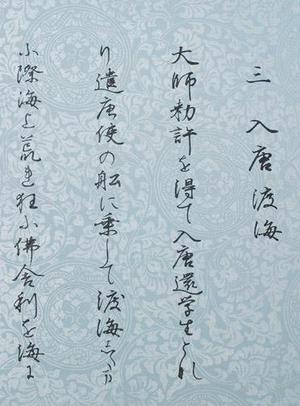 三 入唐渡海
大師勅許を得て入唐還学生とな
り遣唐使の舩に乗して渡海し給
ふ際海上荒れ狂ふ佛舎利を海に